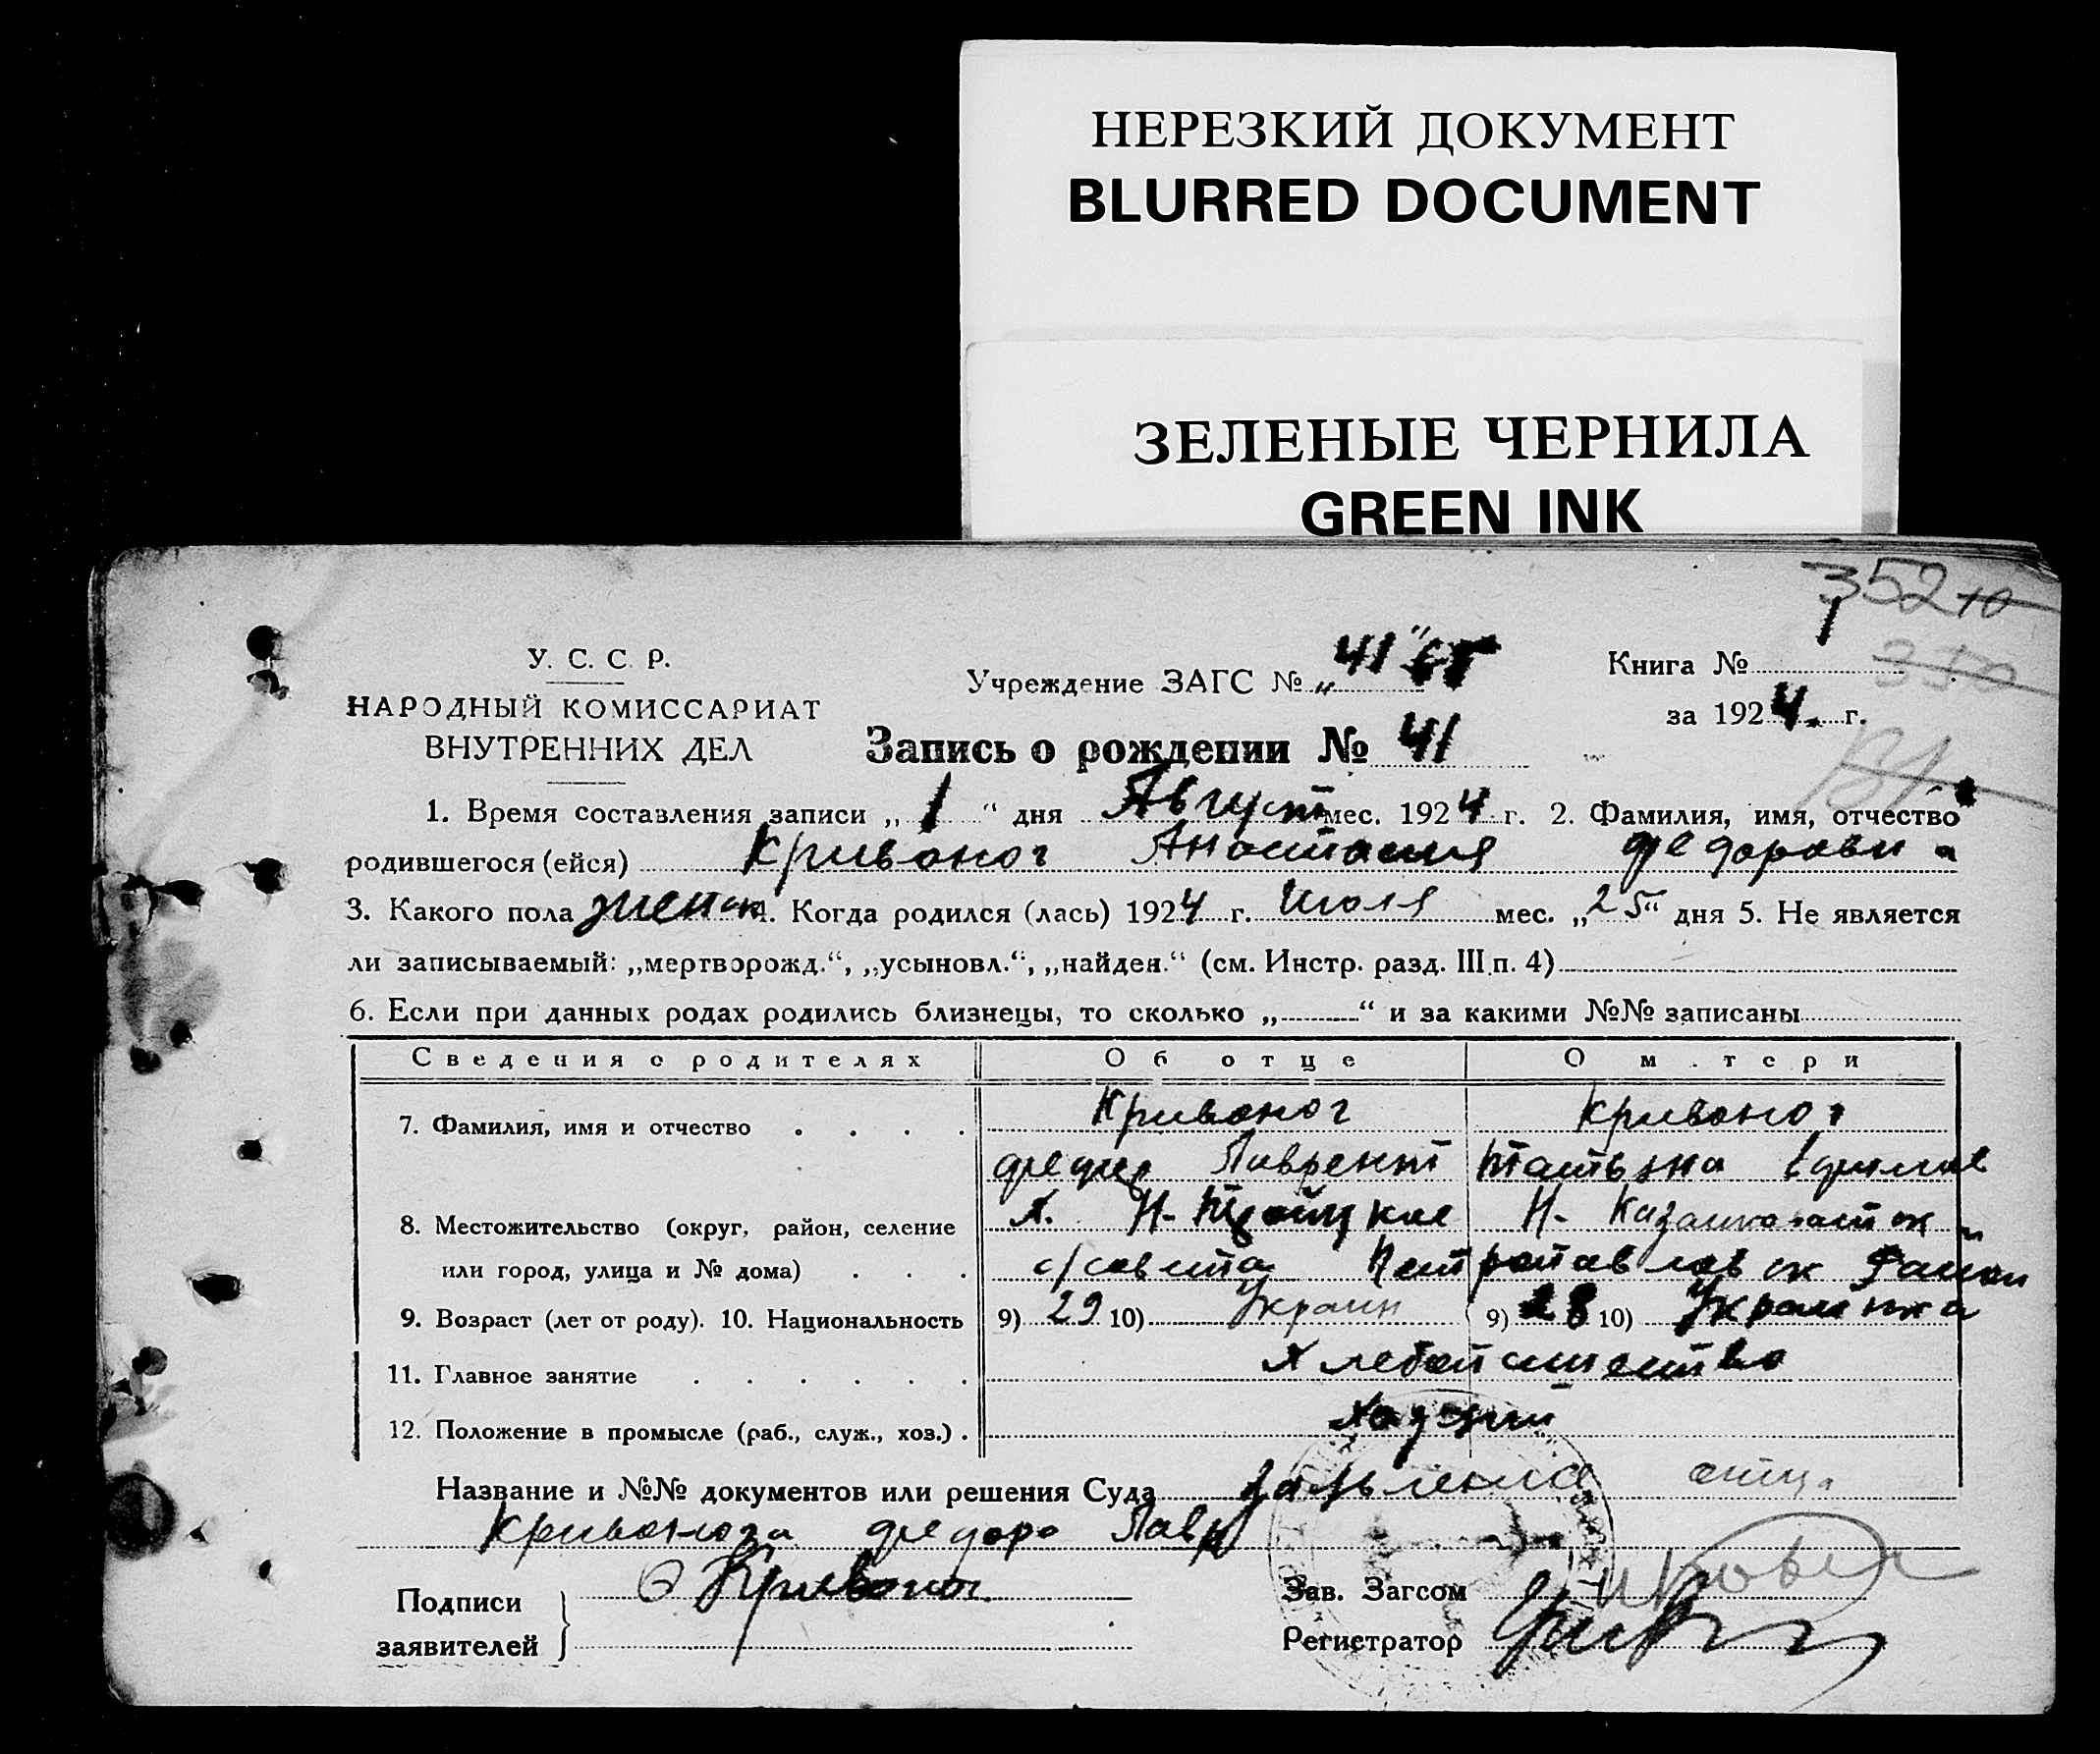 НЕРЕЗКИЙ ДОКУМЕНТ
BLURRED DOCUMENT
ЗЕЛЕНЫЕ ЧЕРНИЛА
GREEN INK
352 10
У. С. С. Р.
НАРОДНЫЙ КОМИССАРИАТ
ВНУТРЕННИХ ДЕЛ
Учреждение ЗАГС № „41"
Книга № 1
350
за 1924 г.
Запись о рождении № 41
1. Время составления записи „1" дня Август мес. 1924 г. 2. Фамилия, имя, отчество
родившегося (ейся) Кривоног Анастасия Федоровна
3. Какого пола женск 4. Когда родился (лась) 1924 г. Июля мес. „25" дня 5. Не является
ли записываемый: „мертворожд.", „усыновл.", „найден." (см. Инстр. разд. III п. 4)
6. Если при данных родах родились близнецы, то сколько „ " и за какими №№ записаны
Сведения о родителях Об отце О м.тери
7. Фамилия, имя и отчество Кривоног Кривоног
Федор Лаврент Татьяна
8. Местожительство (округ, район, селение Х. Н-Троицкае Н-
или город, улица и № дома) с/совета Петропавловск Район
9. Возраст (лет от роду). 10. Национальность 9) 29 10) Украин 9) 28 10) Украинка
11. Главное занятие Хлебопашество
12. Положение в промысле (раб., служ., хоз.) Хозяин
Название и №№ документов или решения Суда отца
Кривонога Федора Лавр
Подписи
заявителей
Кривоног
Зав. Загсом
Регистратор